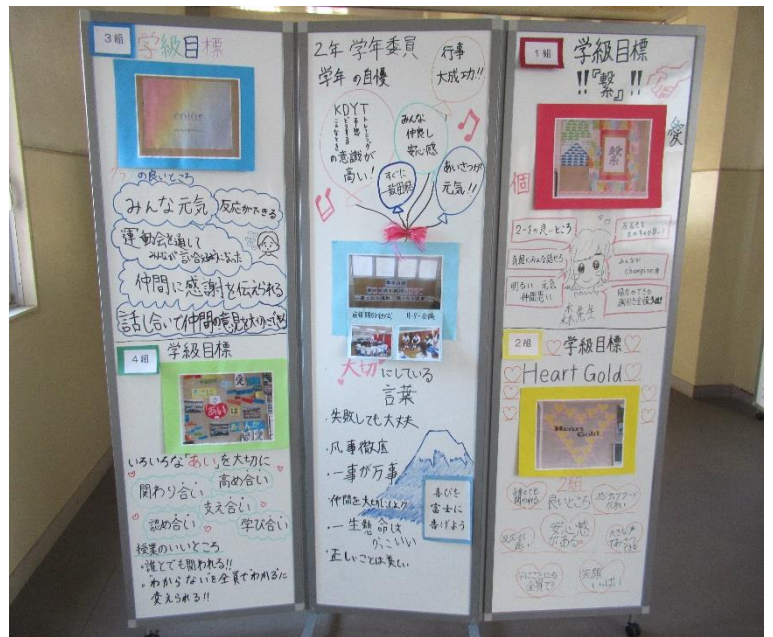 3組
学級目標
color
クラスの良いところ
みんな元気
反応ができる
運動会を通して
仲間に感謝を伝えられる
話し合いで仲間の意見を大切にできる
4組
学級目標
あい
いろいろな「あい」を大切に
関わり合い
高め合い
支え合い
認め合い
学び合い
授業のいいところ
・誰とでも関われる!!
・"わからない"を全員で"わかる"に
変えられる!!
2年 学年委員
学年の自慢
行事
大成功!!
KDYT
の意識が
高い!
みんな
仲良し
安心感
すぐに
あいさつが
元気!!
大切にしている
言葉
・失敗しても大丈夫
・凡事徹底
・一事が万事
・仲間を大切にしよう
・一生懸命は
かっこいい
・正しいことは美しい
喜びを
富士に
告げよう
1組
学級目標
!!『繋糸』!!
愛
個
繋
糸
2-1の良いところ
みんなが
Champion
明るい 元気
仲間思い
森先生
2組
学級目標
Heart Gold
Heart
Gold
2組
良いところ
安心感
がある。
笑顔
いっぱい